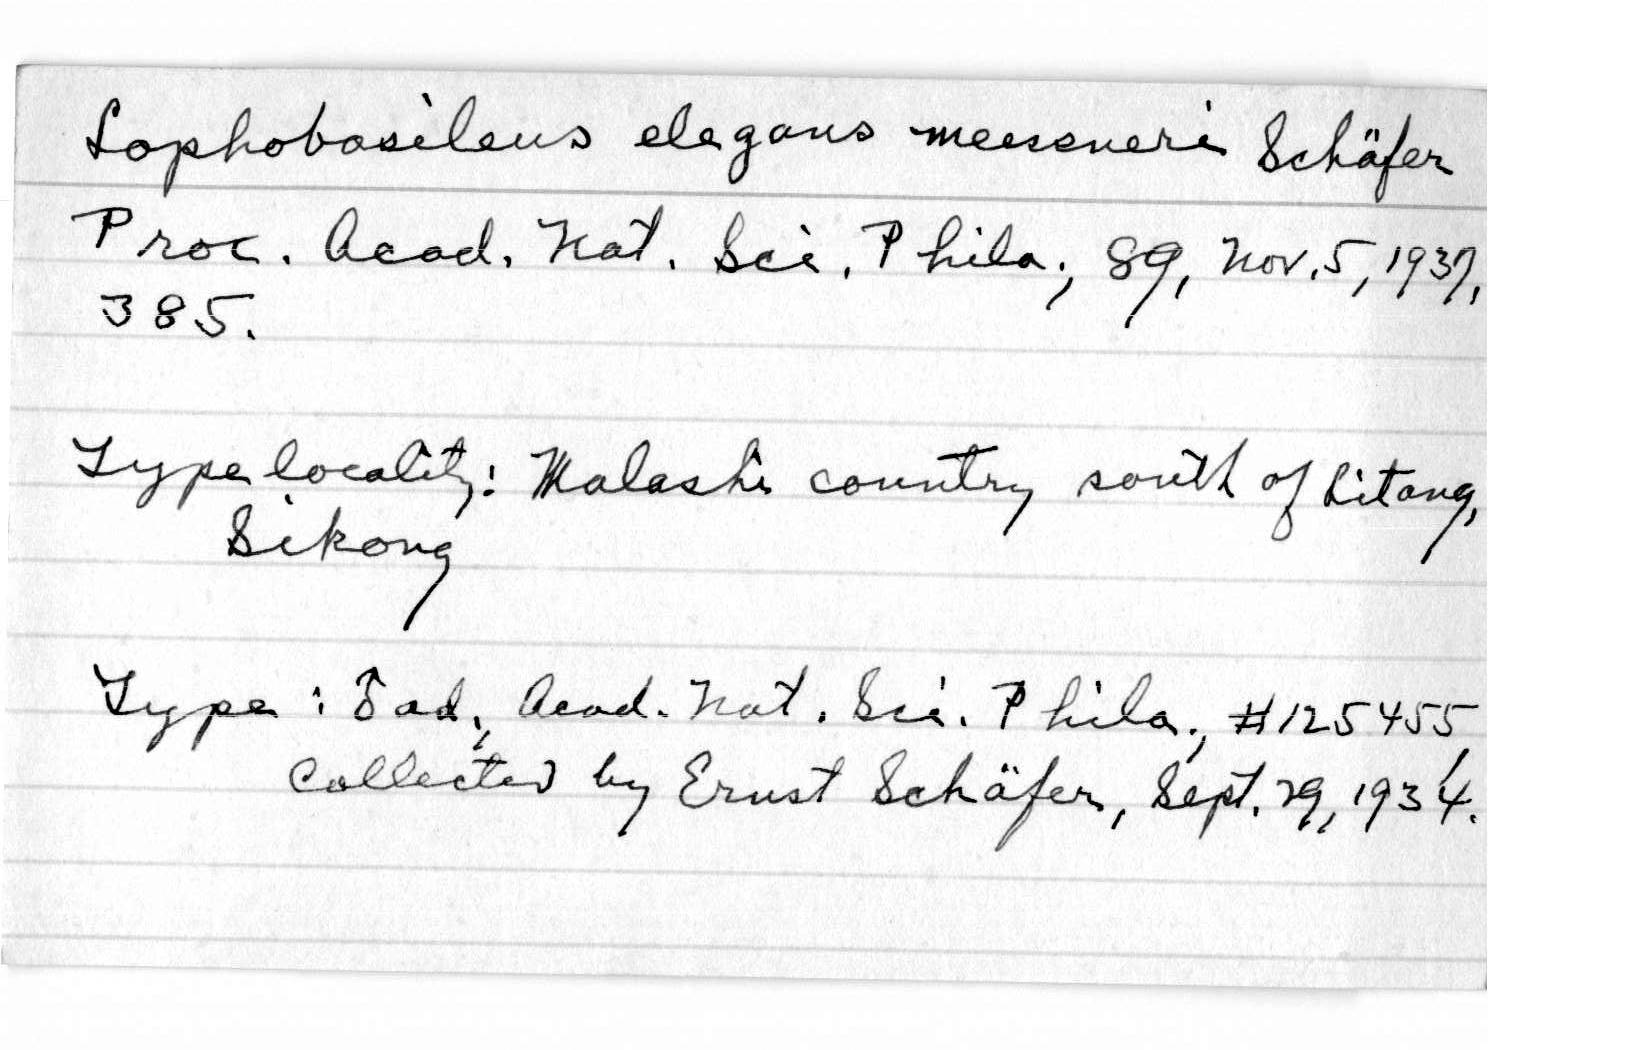 Lophobasileus elegans meissneri Schäfer
Proc. Acad. Nat. Sci. Phila., 89, Nov. 5, 1937,
385.
Type locality: Malashi country south of Litang,
Sikong
Type: ♂ ad., Acad. Nat. Sci. Phila., #125455,
collected by Ernst Schäfer, Sept. 29, 1934.